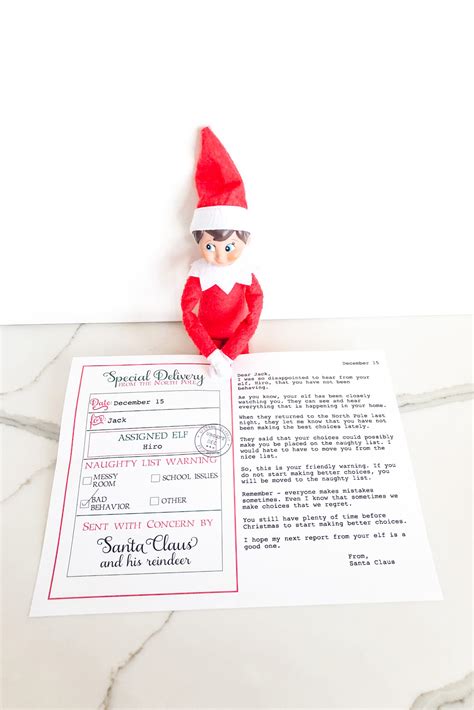 Special Delivery
FROM THE NORTH POLE
Date: December 15
For: Jack
ASSIGNED ELF
Hiro
NAUGHTY LIST WARNING
MESSY ROOM
SCHOOL ISSUES
BAD BEHAVIOR
OTHER
SENT WITH CONCERN BY
Santa Claus
and his reindeer
December 15
Dear Jack,
I was so disappointed to hear from your
elf, Hiro, that you have not been
behaving.
As you know, your elf has been closely
watching you. They can see and hear
everything that is happening in your home.
When they returned to the North Pole last
night, they let me know that you have not
been making the best choices lately.
They said that your choices could possibly
make you be placed on the naughty list. I
would hate to have to move you from the
nice list.
So, this is your friendly warning. If you
do not start making better choices, you
will be moved to the naughty list.
Remember - everyone makes mistakes
sometimes. Even I know that sometimes we
make choices that we regret.
You still have plenty of time before
Christmas to start making better choices.
I hope my next report from your elf is a
good one.
From,
Santa Claus